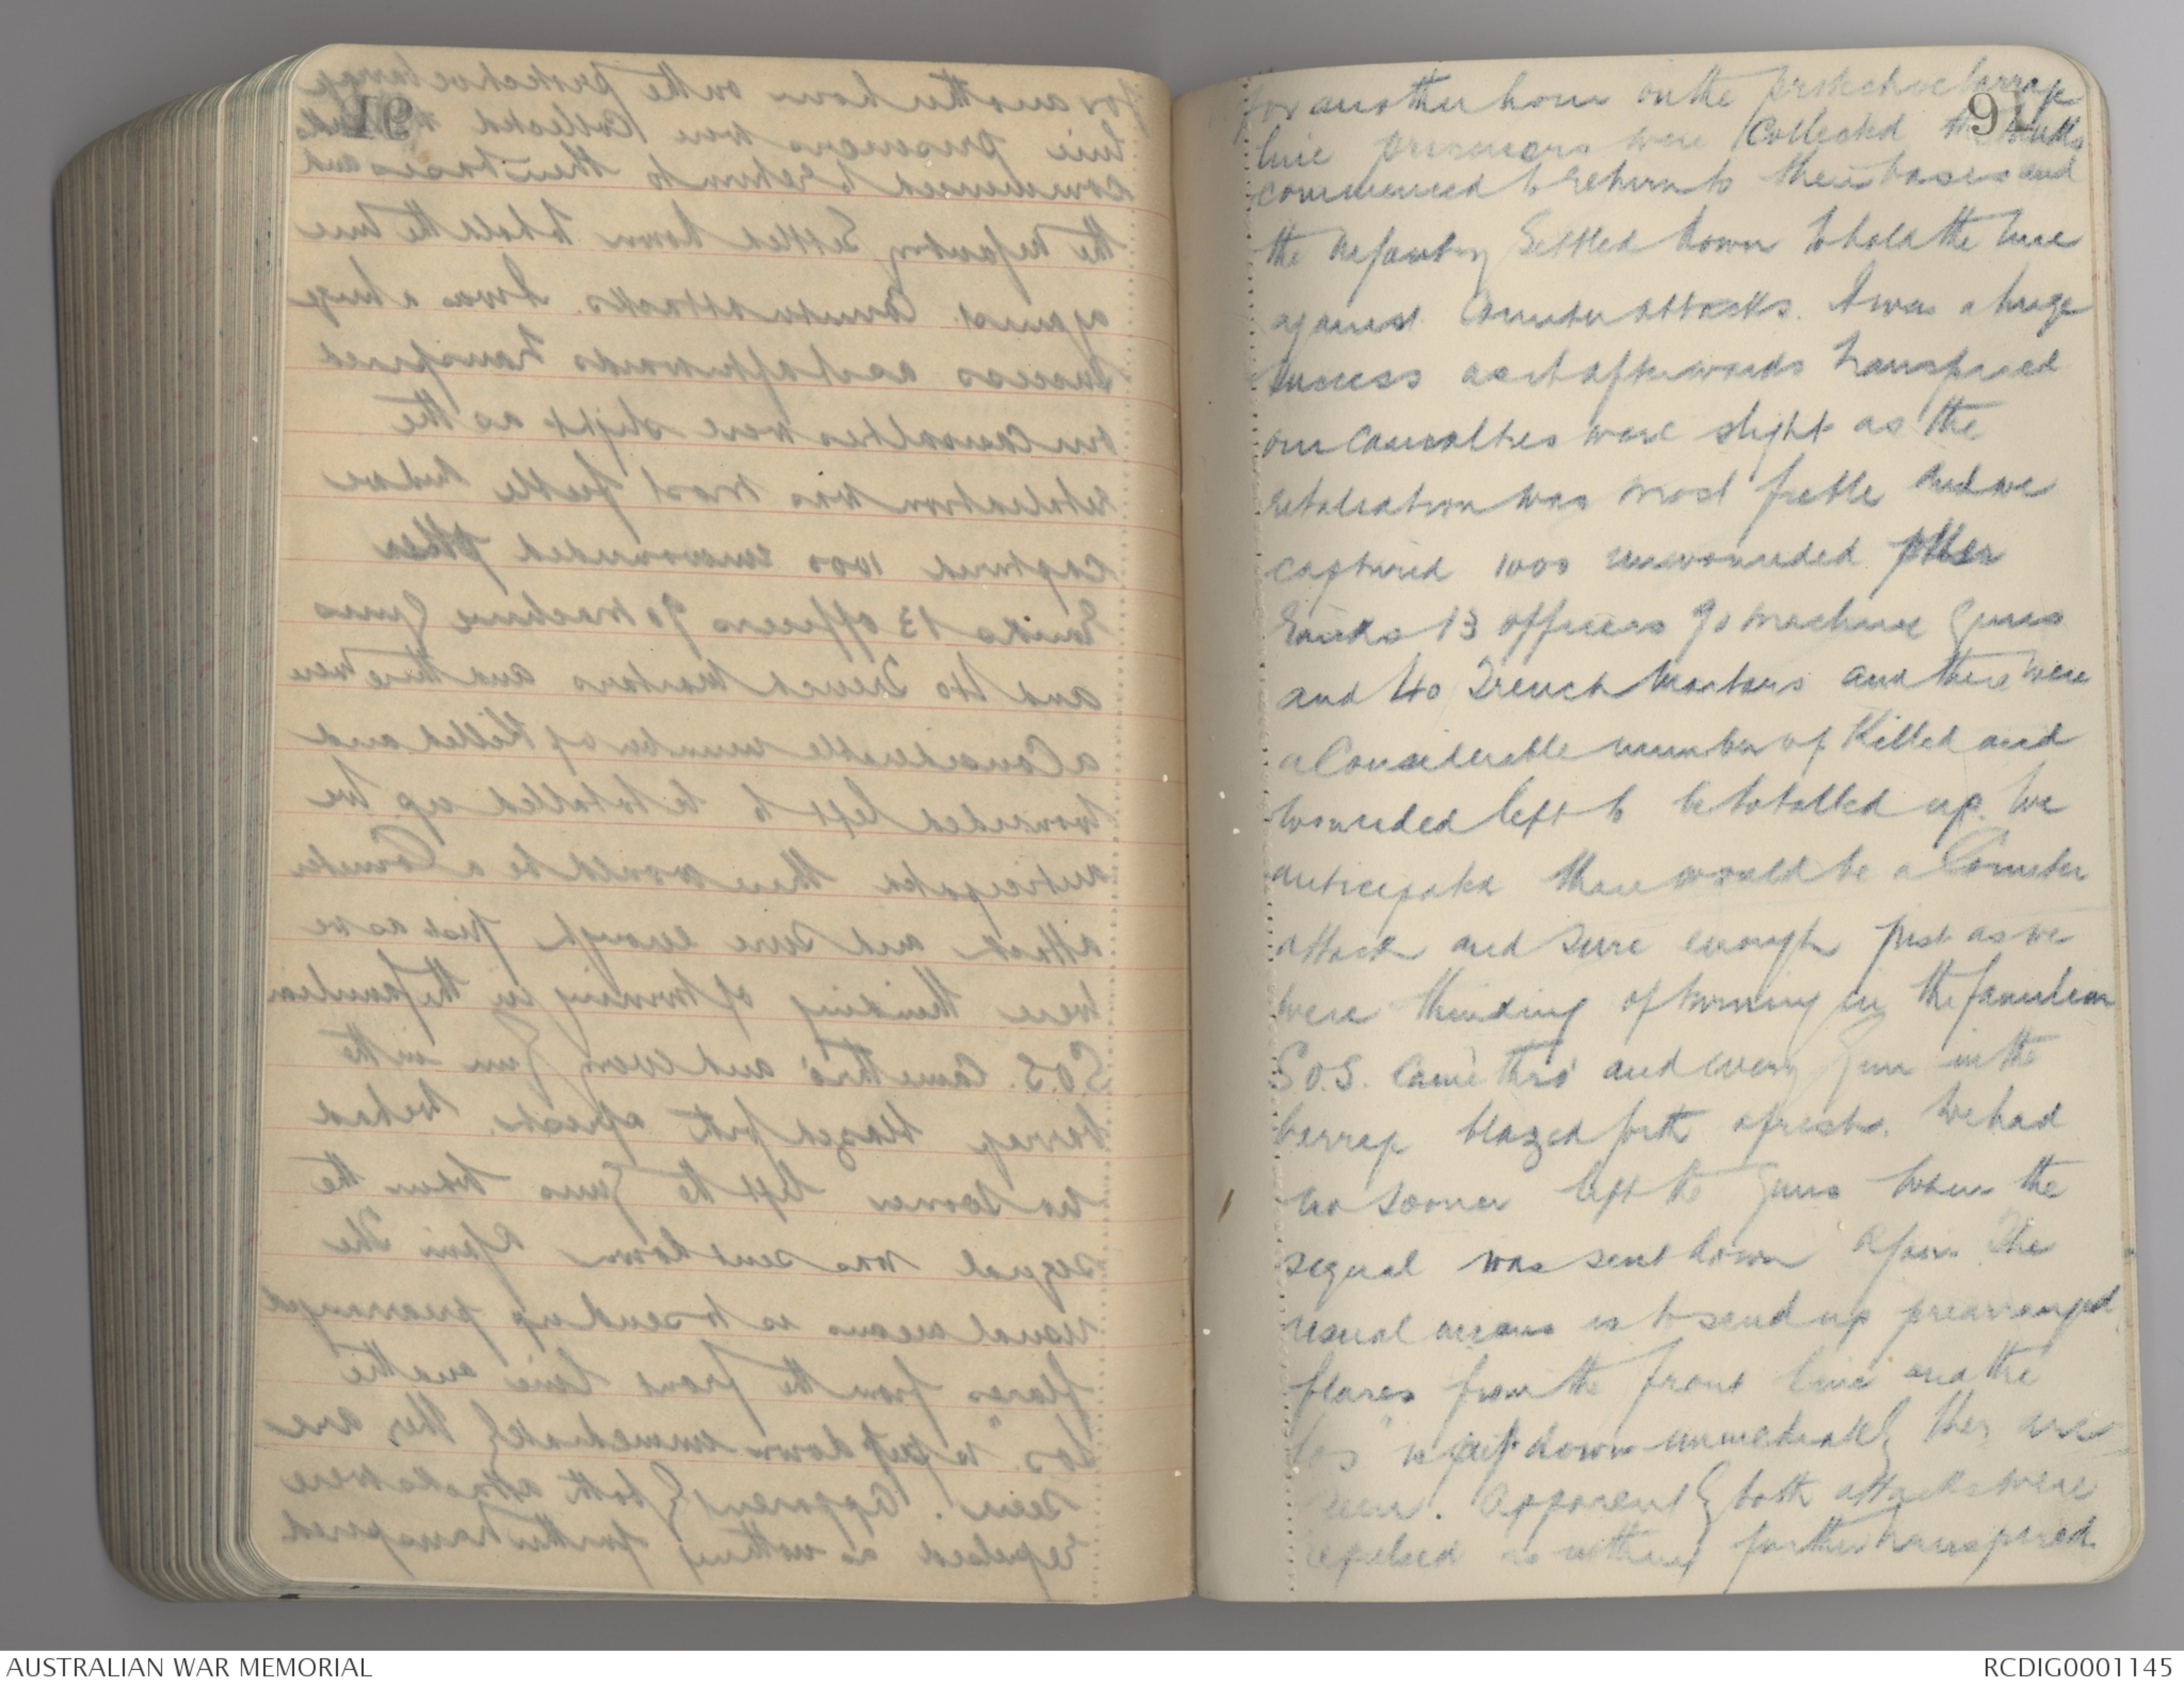 91
for another hour on the protective barrage
line prisoners were collected the tanks
commenced to return to their bases and
the infantry settled down to hold the line
against counter attacks. It was a huge
success as it afterwards transpired
our casualties were slight as the
retaliation was most feeble and we
captured 1000 unwounded other
ranks 13 officers 90 machine guns
and 40 Trench Mortars and there were
a Considerable number of Killed and
wounded left to be totalled up. We
anticipated there would be a Counter
attack and sure enough just as we
were thinking of turning in the familiar
S.O.S. came thro' and every gun in the
barrage blazed forth afresh. We had
no sooner left the guns when the
signal was sent down again. The
usual means is to send up prearranged
flares from the front line and the
"sos" is put down immediately they are
seen. Apparently both attacks were
repulsed as nothing further transpired
AUSTRALIAN WAR MEMORIAL
RCDIG0001145